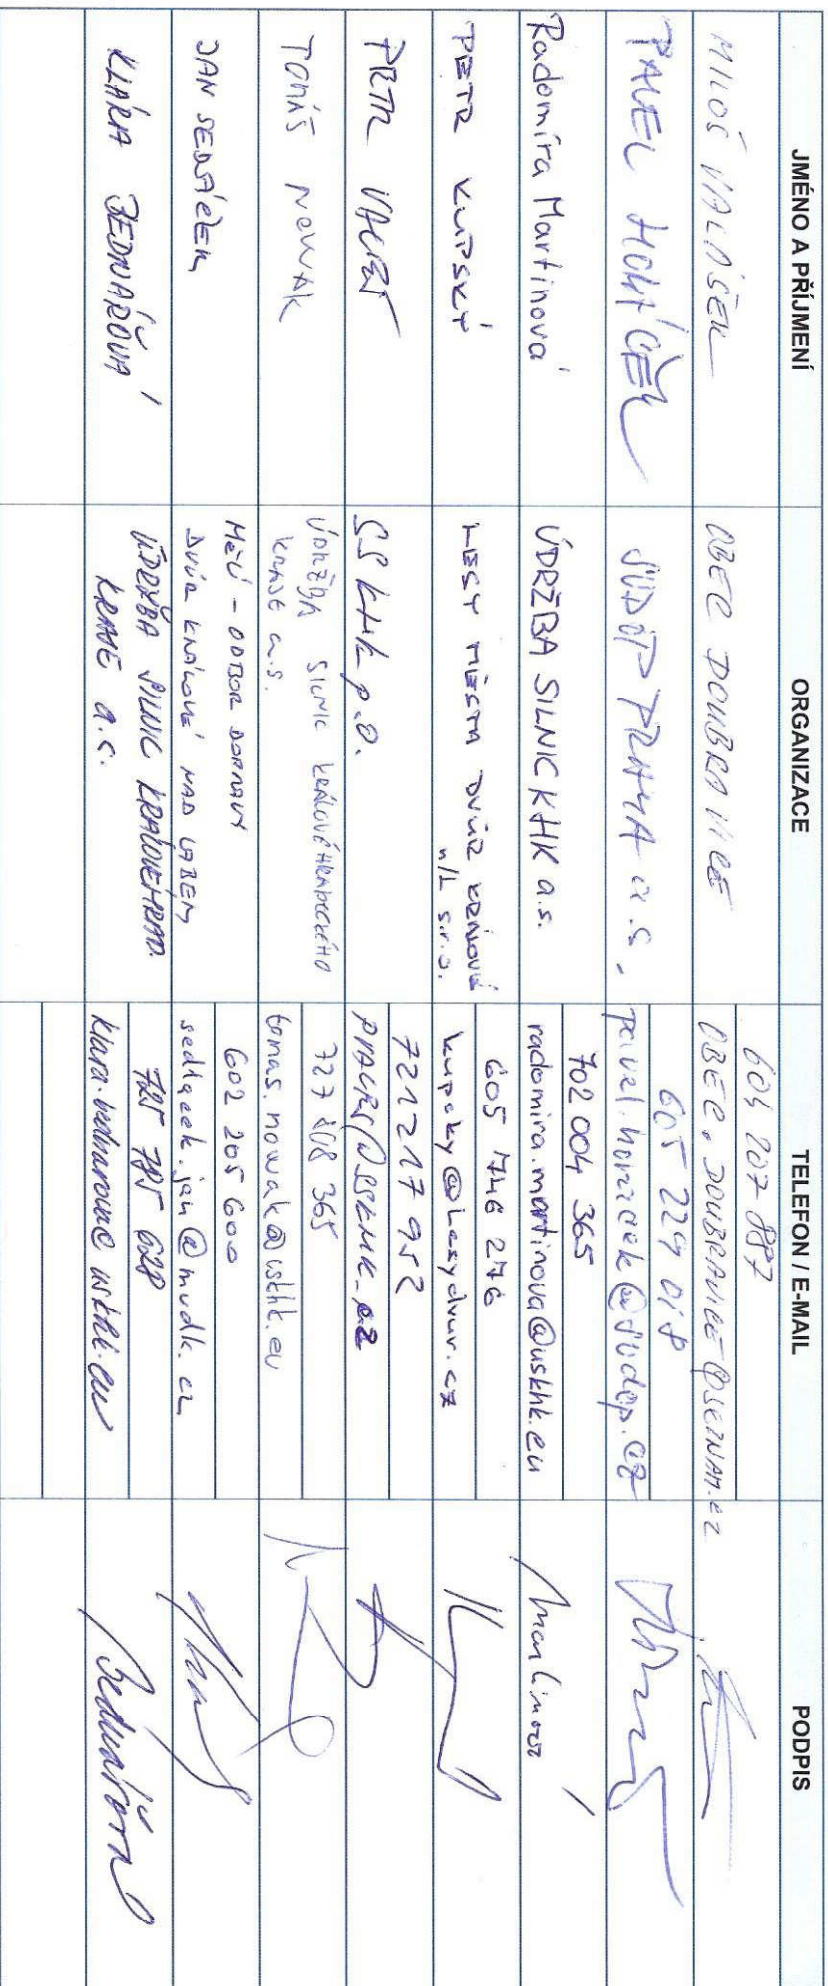 JMÉNO A PŘÍJMENÍ ORGANIZACE TELEFON / E-MAIL PODPIS
MILOŠ VALÁŠEK OBEC DOUBRAVICE 604 207 887
OBEC.DOUBRAVICE@SEZNAM.CZ
PAVEL HORÁČEK SUDOP PRAHA a.s. 605 229 018
pavel.horacek@sudop.cz
Radomíra Martinová ÚDRŽBA SILNIC KHK a.s. 702 004 365
radomira.martinova@uskhk.eu Martinová
PETR KUPSKÝ LESY MĚSTA DVŮR KRÁLOVÉ
n/L s.r.o. 605 746 276
kupsky@lesydvur.cz
PETR SS KHK p.o. 721 217 952
TOMÁŠ NOWAK ÚDRŽBA SILNIC KRÁLOVÉHRADECKÉHO
KRAJE a.s. 727 365
tomas.nowak@uskhk.eu
JAN SEDLÁČEK MěÚ - ODBOR DOPRAVY
DVŮR KRÁLOVÉ NAD LABEM 602 205 600
sedlacek.jan@mudk.cz
KLÁRA BEDNÁŘOVÁ ÚDRŽBA SILNIC KRÁLOVÉHRAD.
KRAJE a.s. 725 785 628
klara.bednarova@uskhk.eu Bednářová